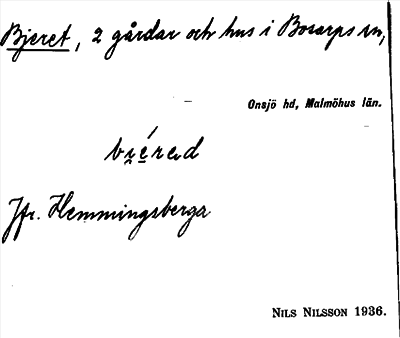 Bjeret, 2 gårdar och hus i Bosarps sn,
Onsjö hd, Malmöhus län.
Jfr. Hemmingsberga
NILS NILSSON 1936.